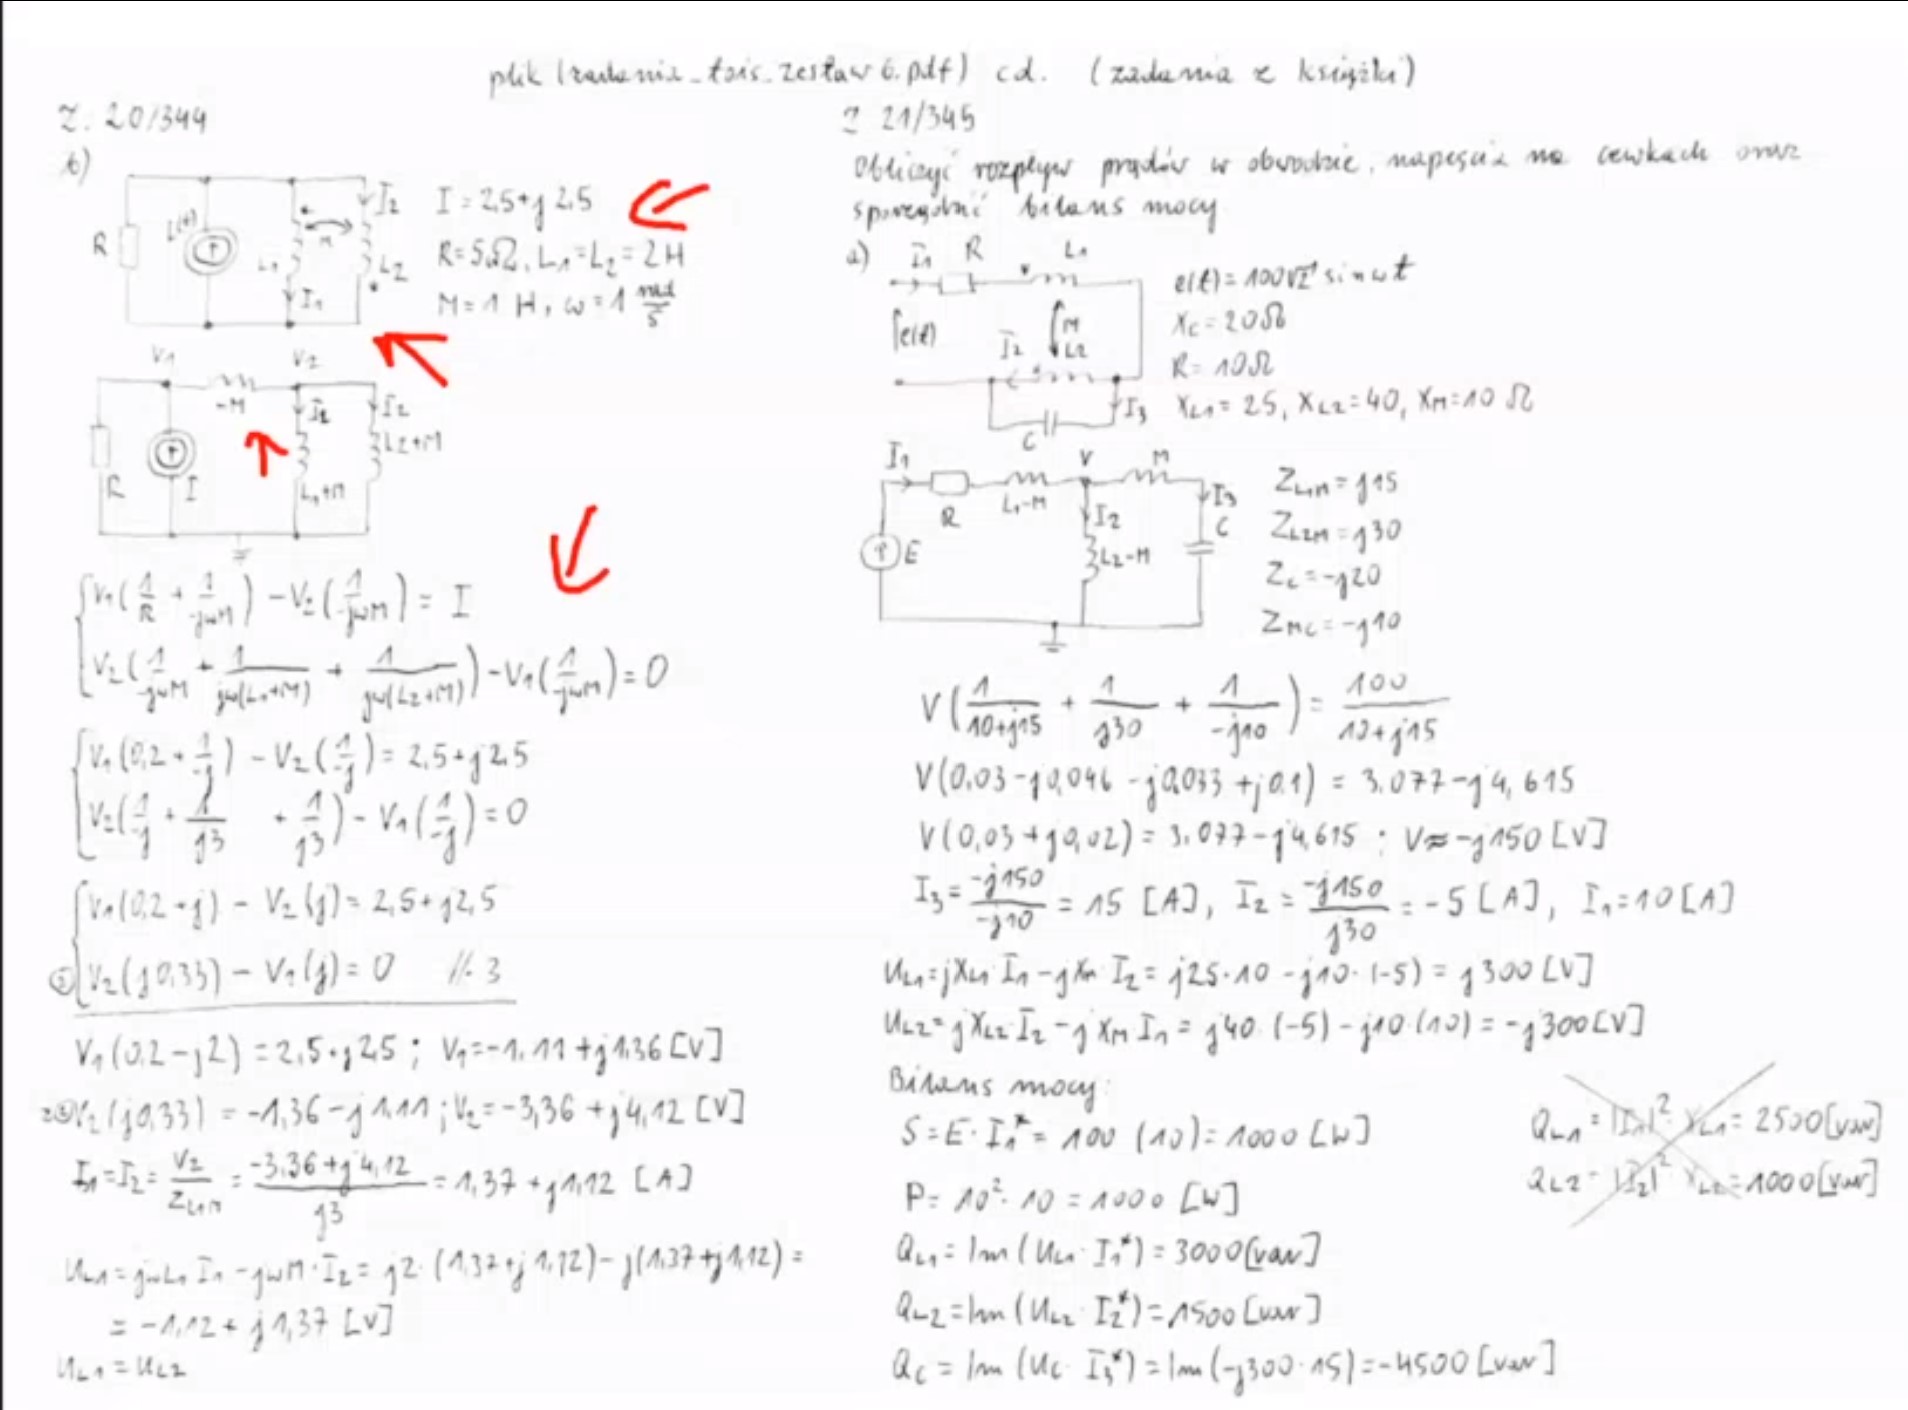 plik (zadania_tois_zestaw 6.pdf) cd. (zadania z książki)
Z. 20/344
b)
R
i(t)
M
L1
I1
I2
L2
I = 2,5+j2,5
R=5Ω, L1=L2=2H
M=1 H, ω=1 rad/s
V1
V2
-M
I2
I2
R
I
L1+M
L2+M
V1(1/R + 1/-jωM) - V2(1/-jωM) = I
V2(1/-jωM + 1/jω(L1+M) + 1/jω(L2+M)) - V1(1/-jωM) = 0
V1(0,2 + 1/-j) - V2(1/-j) = 2,5+j2,5
V2(1/-j + 1/j3 + 1/j3) - V1(1/-j) = 0
V1(0,2+j) - V2(j) = 2,5+j2,5
V2(j0,33) - V1(j) = 0 //·3
V1(0,2-j2) = 2,5+j2,5 ; V1=-1,11+j1,36 [V]
V2(j0,33) = -1,36-j1,11 ; V2=-3,36+j4,12 [V]
I1=I2= V2/ZL1M = -3,36+j4,12/j3 = 1,37+j1,12 [A]
UL1=jωL1 I1 - jωM·I2 = j2·(1,37+j1,12) - j(1,37+j1,12) =
= -1,12+j1,37 [V]
UL1 = UL2
Z 21/345
Obliczyć rozpływ prądów w obwodzie, napięcia na cewkach oraz
sporządzić bilans mocy
a)
I1
R
L1
e(t)
M
I2
L2
I3
C
e(t) = 100√2 sinωt
Xc = 20Ω
R = 10Ω
XL1 = 25, XL2 = 40, XM = 10 Ω
I1
V
M
R
L1-M
I2
I3
C
E
L2-M
ZL1M = j15
ZL2M = j30
Zc = -j20
ZMC = -j10
V(1/10+j15 + 1/j30 + 1/-j10) = 100/10+j15
V(0,03-j0,046-j0,033+j0,1) = 3,077-j4,615
V(0,03+j0,02) = 3,077-j4,615 ; V≈-j150 [V]
I3 = -j150/-j10 = 15 [A], I2 = -j150/j30 = -5 [A], I1=10 [A]
UL1=jXL1·I1-jXM·I2= j25·10 - j10·(-5) = j300 [V]
UL2=jXL2·I2-jXM I1 = j40·(-5) - j10·(10) = -j300 [V]
Bilans mocy:
S = E·I1* = 100 (10) = 1000 [W]
P = 10²·10 = 1000 [W]
QL1 = Im (UL1·I1*) = 3000 [var]
QL2 = Im (UL2·I2*) = 1500 [var]
Qc = Im (Uc·I3*) = Im(-j300·15) = -4500 [var]
QL1 = |I1|²·XL1 = 2500 [var]
QL2 = |I2|² XL2 = 1000 [var]